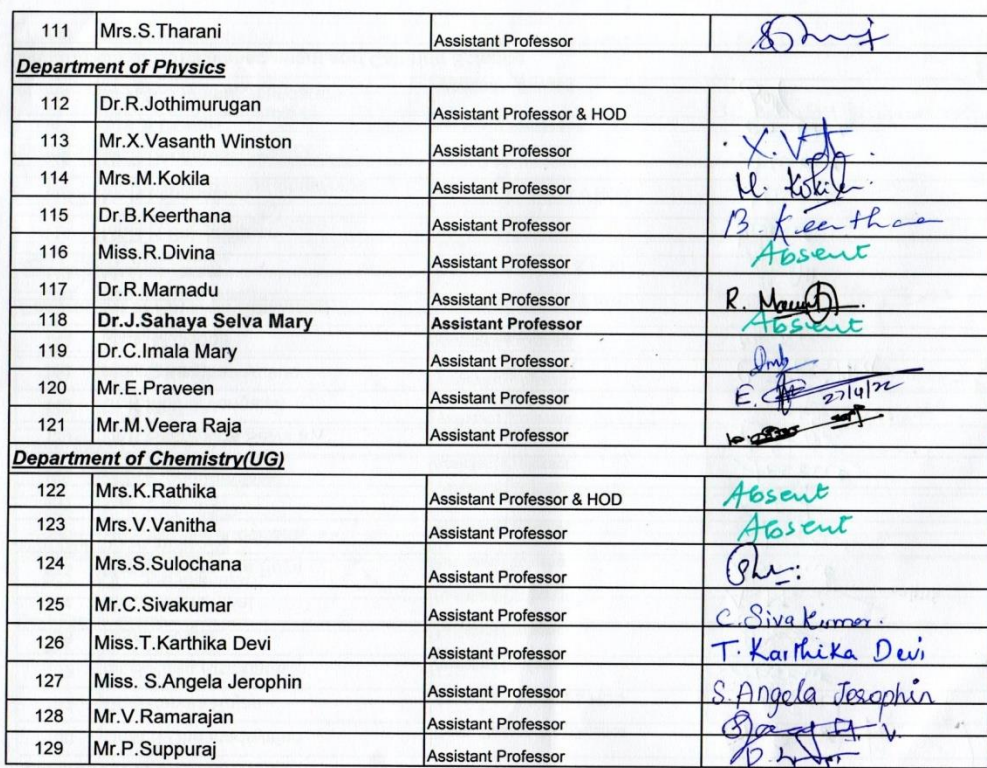 111 Mrs.S.Tharani Assistant Professor
Department of Physics
112 Dr.R.Jothimurugan Assistant Professor & HOD
113 Mr.X.Vasanth Winston Assistant Professor X.
114 Mrs.M.Kokila Assistant Professor M. Kokila
115 Dr.B.Keerthana Assistant Professor B. Keerthana
116 Miss.R.Divina Assistant Professor Absent
117 Dr.R.Marnadu Assistant Professor R.
118 Dr.J.Sahaya Selva Mary Assistant Professor Absent
119 Dr.C.Imala Mary Assistant Professor
120 Mr.E.Praveen Assistant Professor E. 27/4/22
121 Mr.M.Veera Raja Assistant Professor
Department of Chemistry(UG)
122 Mrs.K.Rathika Assistant Professor & HOD Absent
123 Mrs.V.Vanitha Assistant Professor Absent
124 Mrs.S.Sulochana Assistant Professor
125 Mr.C.Sivakumar Assistant Professor C. Sivakumar.
126 Miss.T.Karthika Devi Assistant Professor T. Karthika Devi
127 Miss. S.Angela Jerophin Assistant Professor S. Angela Jerophin
128 Mr.V.Ramarajan Assistant Professor
129 Mr.P.Suppuraj Assistant Professor